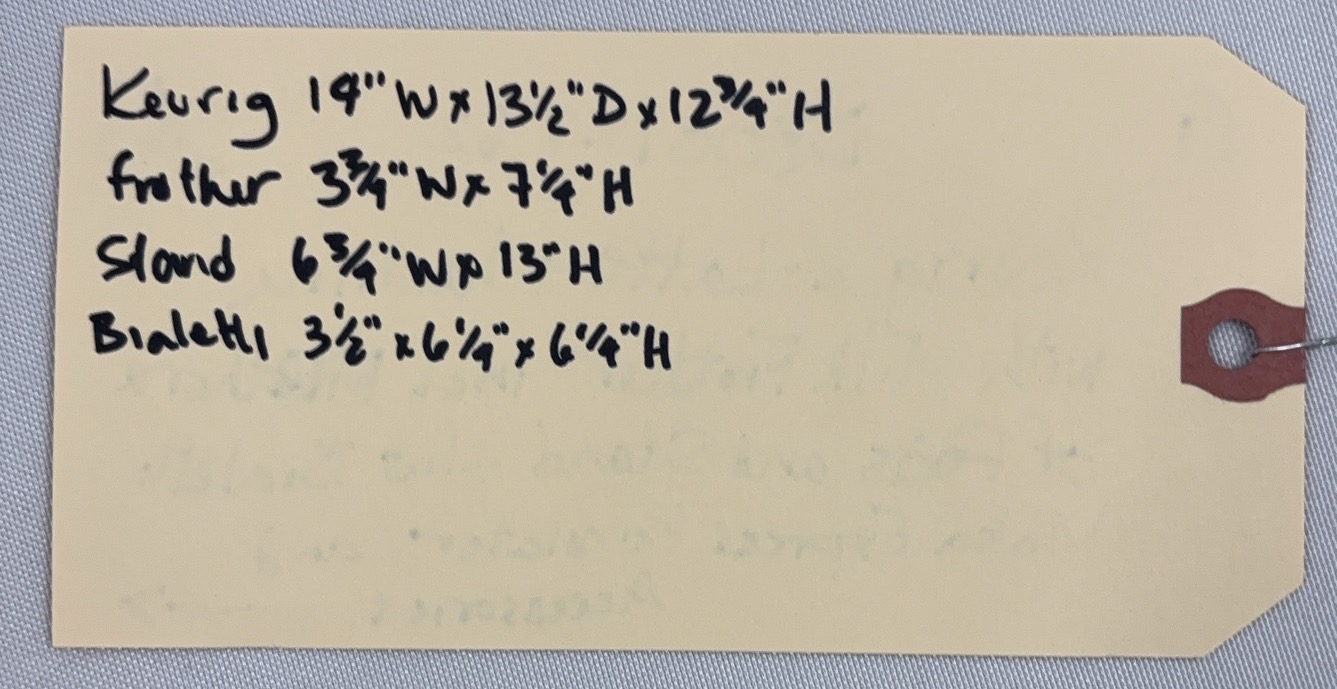 Keurig 14" W x 13 1/2" D x 12 3/4" H
frother 3 3/4" W x 7 1/4" H
Stand 6 3/4" W x 13" H
Bialetti 3 1/2" x 6 1/4" x 6 1/4" H